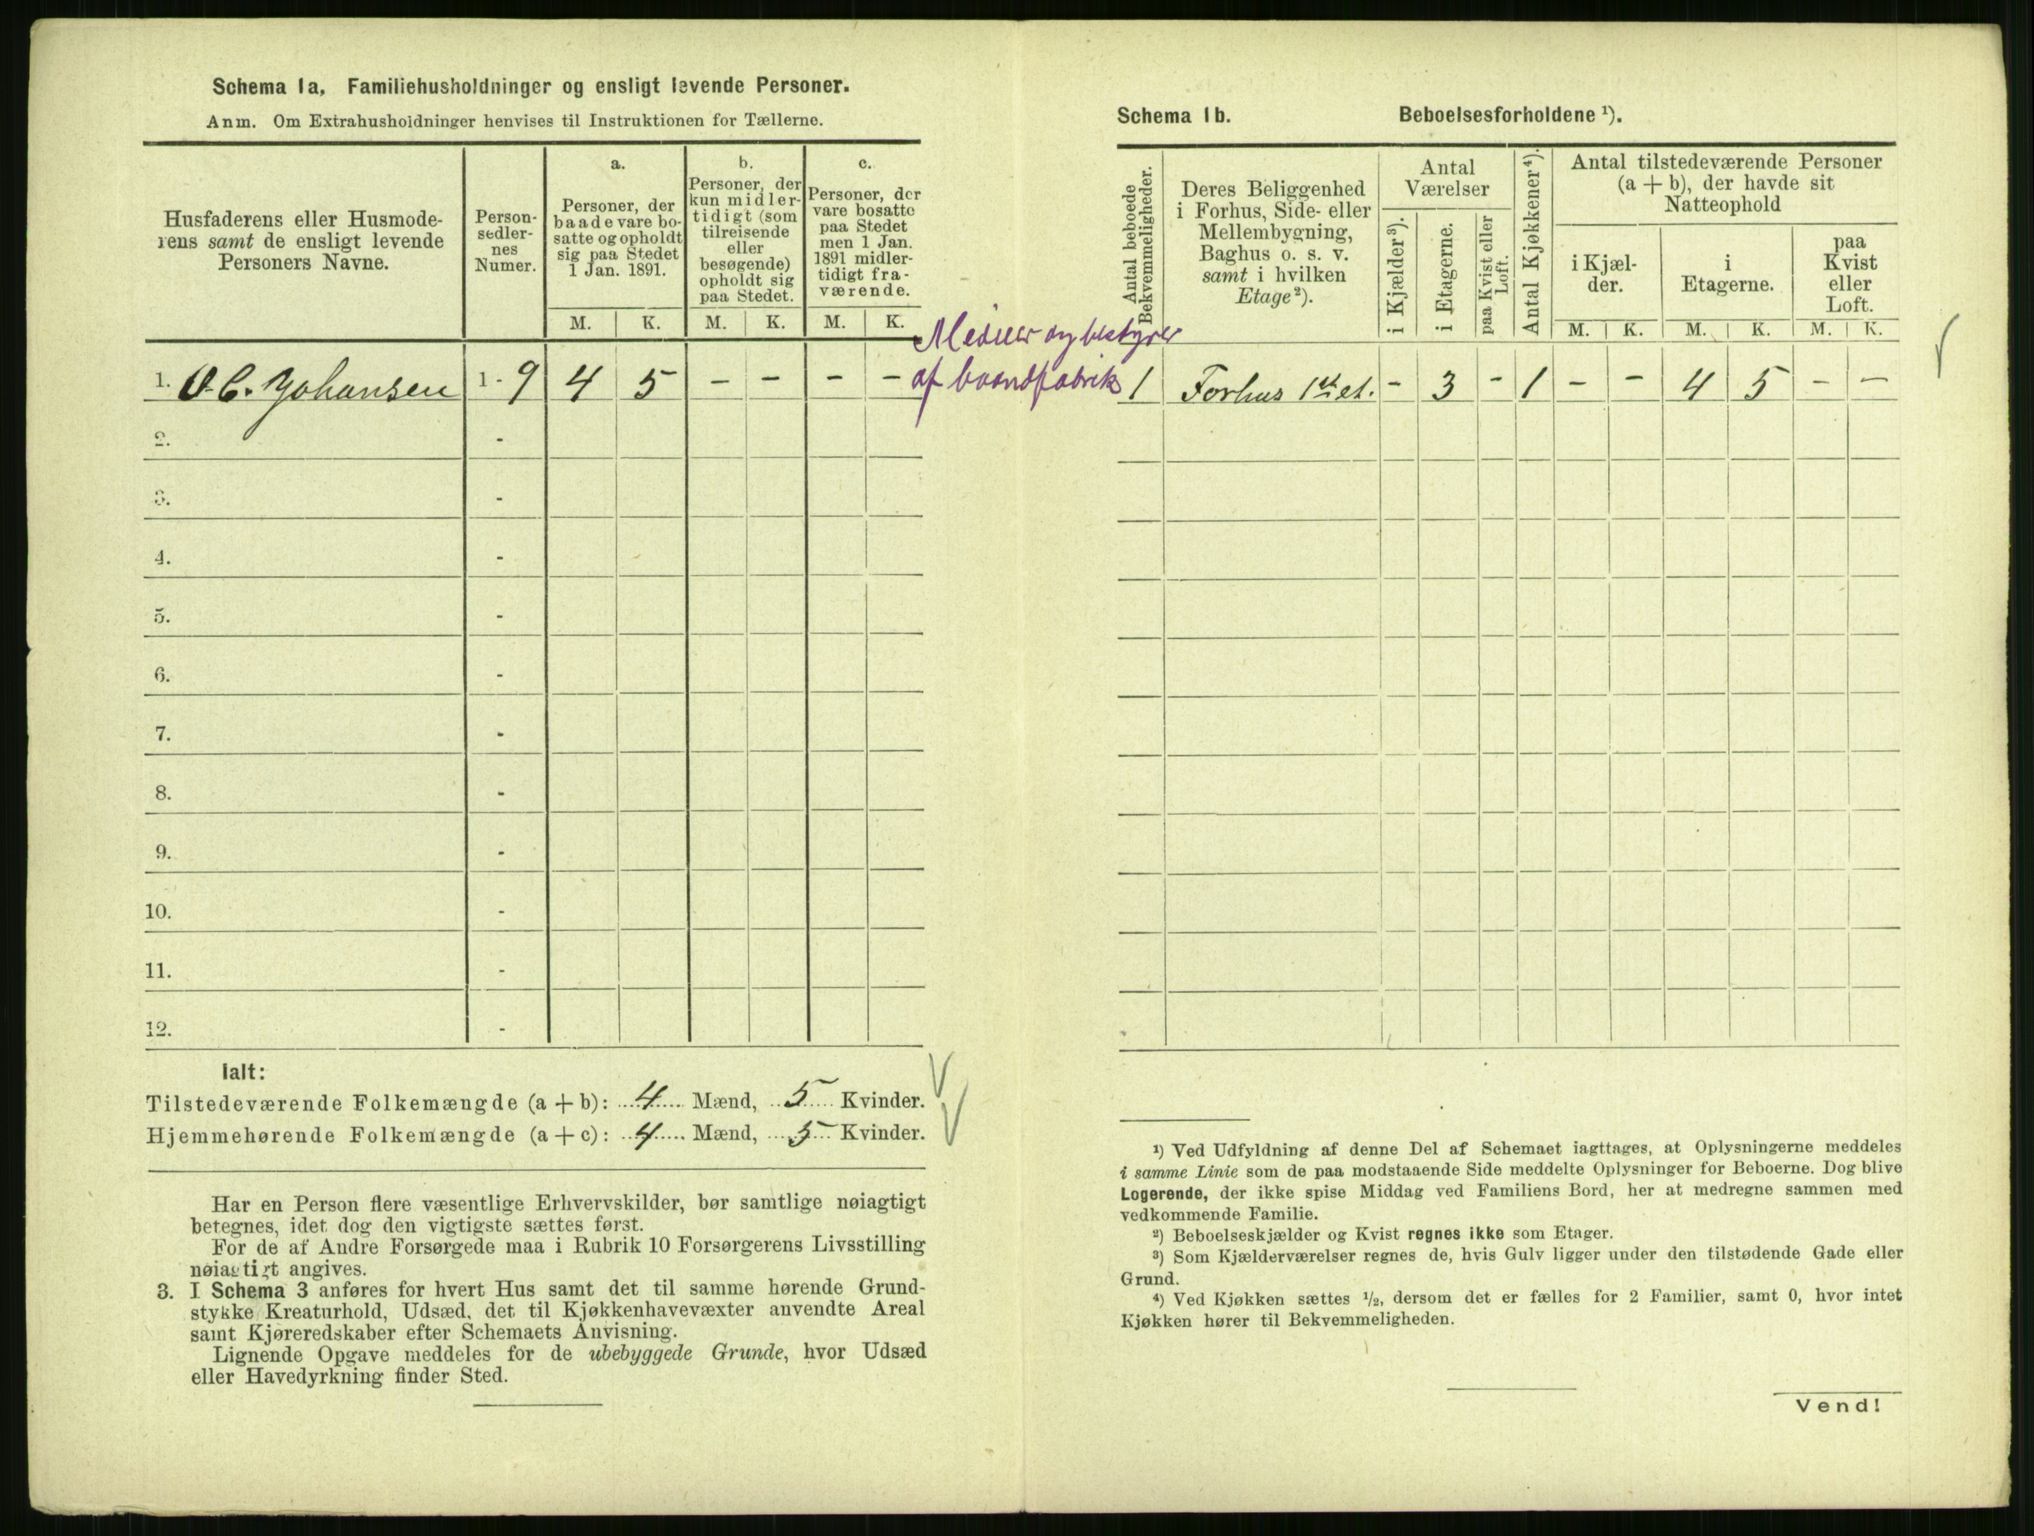 Schema 1a. Familiehusholdninger og ensligt levende Personer.
Anm. Om Extrahusholdninger henvises til Instruktionen for Tællerne.
Husfaderens eller Husmode-
rens samt de ensligt levende
Personers Navne.
Person-
sedler-
nes
Numer.
a.
Personer, der
baade vare bo-
satte og opholdt
sig paa Stedet
1 Jan. 1891.
b.
Personer, der
kun midler-
tidigt (som
tilreisende
eller
besøgende)
opholdt sig
paa Stedet.
c.
Personer, der
vare bosatte
paa Stedet
men 1 Jan.
1891 midler-
tidigt fra-
værende.
M. K. M. K. M. K.
1. O. C. Johansen 1 - 9 4 5 - - - -
2. -
3. -
4. -
5. -
6. -
7. -
8. -
9. -
10. -
11. -
12. -
Ialt:
Tilstedeværende Folkemængde (a + b): 4 Mænd, 5 Kvinder.
Hjemmehørende Folkemængde (a + c): 4 Mænd, 5 Kvinder.
Har en Person flere væsentlige Erhvervskilder, bør samtlige nøiagtigt
betegnes, idet dog den vigtigste sættes først.
For de af Andre Forsørgede maa i Rubrik 10 Forsørgerens Livsstilling
nøiagtigt angives.
3. I Schema 3 anføres for hvert Hus samt det til samme hørende Grund-
stykke Kreaturhold, Udsæd, det til Kjøkkenhavevæxter anvendte Areal
samt Kjøreredskaber efter Schemaets Anvisning.
Lignende Opgave meddeles for de ubebyggede Grunde, hvor Udsæd
eller Havedyrkning finder Sted.
og bestyrer
af
Schema 1b. Beboelsesforholdene ¹).
Antal beboede
Bekvemmeligheder.
Deres Beliggenhed
i Forhus, Side- eller
Mellembygning,
Baghus o. s. v.
samt i hvilken
Etage ²).
Antal
Værelser
i Kjælder ³).
i Etagerne.
paa Kvist eller
Loft.
Antal Kjøkkener ⁴).
Antal tilstedeværende Personer
(a + b), der havde sit
Natteophold
i Kjæl-
der.
i
Etagerne.
paa
Kvist
eller
Loft.
M. K. M. K. M. K.
1 Forhus 1ste et. - 3 - 1 - - 4 5 - -
¹) Ved Udfyldning af denne Del af Schemaet iagttages, at Oplysningerne meddeles
i samme Linie som de paa modstaaende Side meddelte Oplysninger for Beboerne. Dog blive
Logerende, der ikke spise Middag ved Familiens Bord, her at medregne sammen med
vedkommende Familie.
²) Beboelseskjælder og Kvist regnes ikke som Etager.
³) Som Kjælderværelser regnes de, hvis Gulv ligger under den tilstødende Gade eller
Grund.
⁴) Ved Kjøkken sættes ½, dersom det er fælles for 2 Familier, samt 0, hvor intet
Kjøkken hører til Bekvemmeligheden.
Vend!